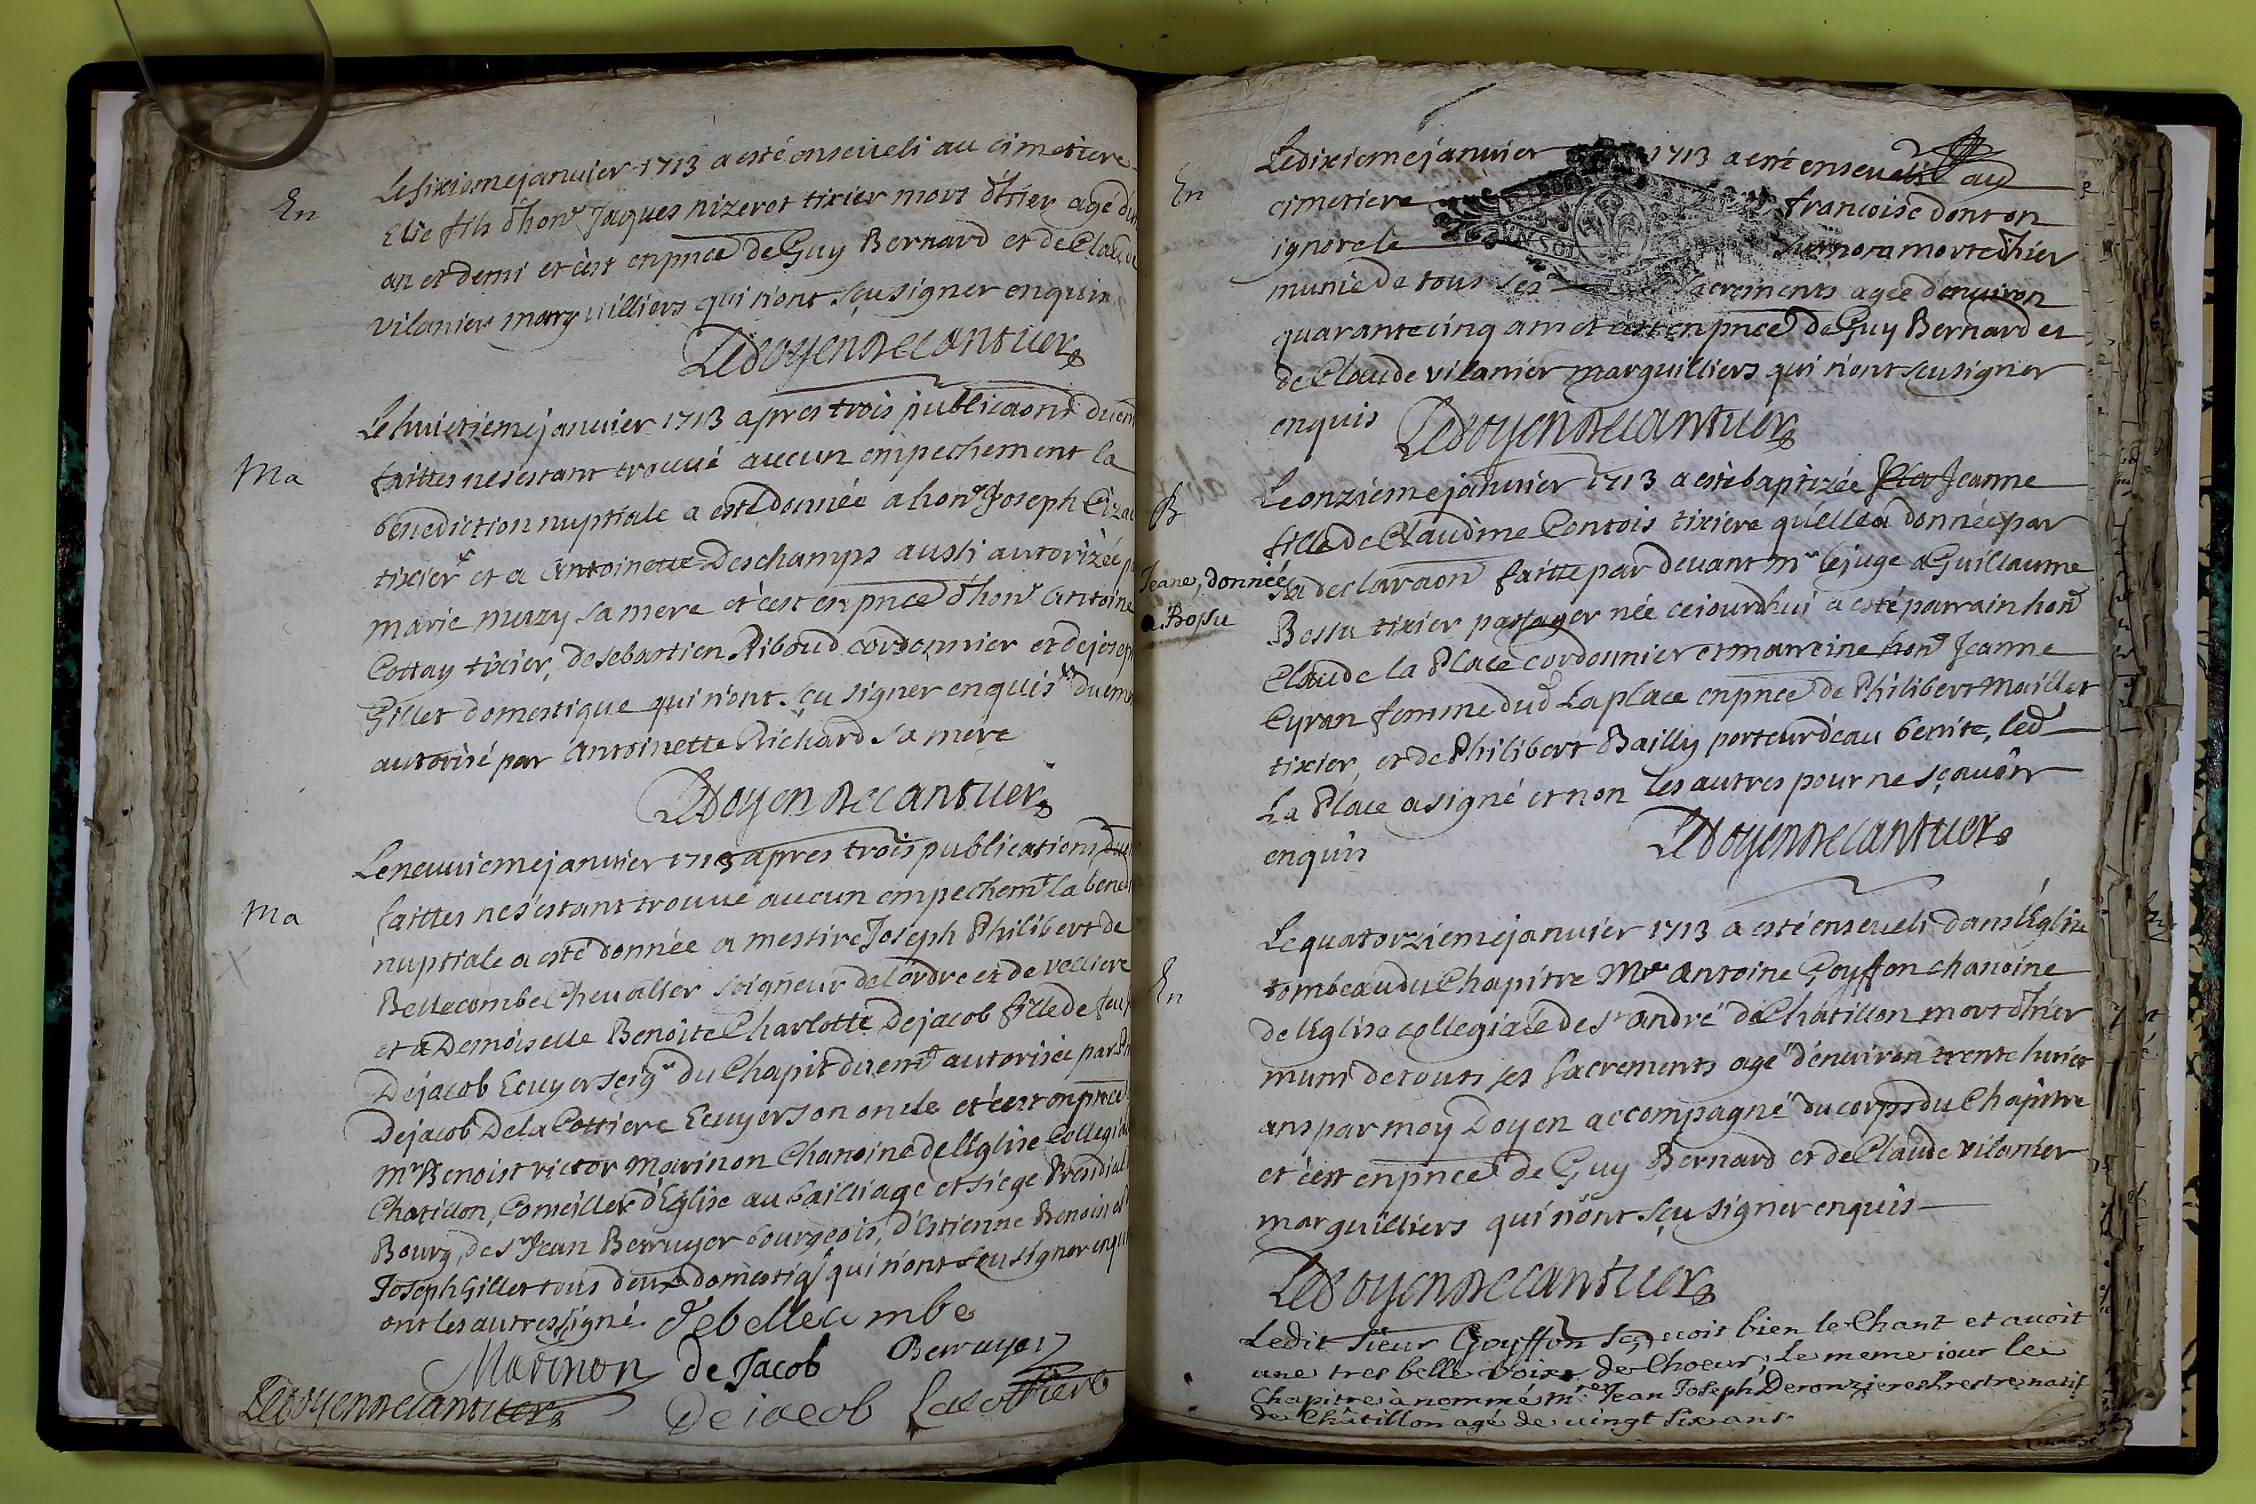 En
Le sixieme janvier 1713 a esté enseveli au cimetiere
Elie fils d'hon.^e Jaques nizerot tixier mort d'hier agé d'un
an et demi et c'est en pnce de Guy Bernard et de Claude
vilanier marguilliers qui n'ont sçu signer enquis
Ledoyen Decantuer
Ma
Le huictieme janvier 1713 apres trois publicaons duem
faittes ne s'estant trouvé aucun empechement la
benediction nuptiale a esté donnée a hon.^e Joseph
tixier et a Antoinette Deschamps aussi autorizée
marie muzy sa mere et c'est en pnce d'hon.^e Antoine
Cottay tixier, de sebastien Riboud cordonnier et de joseph
Gillet domestique qui n'ont sçu signer enquis duem
autorisé par Antoinette Richard sa mere
Ledoyen Decantuer
Ma
Le neuvieme janvier 1713 apres trois publications
faittes ne s'estant trouvé aucun empechem^t la bened
nuptiale a esté donnée a messire Joseph Philibert de
Bellecombe Chevalier seigneur de l'ordre et de velliere
et a Demoiselle Benoite Charlotte Dejacob fille de feu
Dejacob Ecuyer seig^r du Chapit duem^t autorisée par
Dejacob De la Cottiere Ecuyer son oncle et c'est en pnce
M^r Benoist victor Marinon Chanoine de l'Eglise Collegi
Chatillon, Conseiller d'Eglise au bailliage et siege Presidial
Bourg, de s^r Jean Berruyer bourgeois, d'Estienne Benoist et
Joseph Gillet tous deux domestiq^s qui n'ont sçu signer enqui
ont les autres signé. Debellecombe
Marinon de Jacob Berruyer
Ledoyen Decantuer Dejacob Lacottiere
En
Le dixieme janvier 1713 a esté enseveli au
cimetiere francoise dont on
ignore le surnom morte d'hier
munie de tous ses sacrements agée d'environ
quarante cinq ans et c'est en pnce de Guy Bernard et
de Claude vilanier marguilliers qui n'ont sçu signer
enquis Ledoyen Decantuer
B
Jeane, donnée
a Bossu
Le onzieme janvier 1713 a esté baptizée Jeanne
fille de Claudine Contois tixiere qu'elle a donnée par
sa declaraon faitte par devant m^r le juge a Guillaume
Bossu tixier passager née cejourd'hui a esté parrain hon^e
Claude la Place cordonnier et marreine hon^e Jeanne
Cyran femme dud Laplace en pnce de Philibert Maillet
tixier, et de Philibert Bailly porteur d'eau benite, led
La Place a signé et non les autres pour ne sçavoir
enquis Ledoyen Decantuer
En
Le quatorzieme janvier 1713 a esté enseveli dans l'Eglise
tombeau du Chapitre M^re Antoine Goyffon chanoine
de l'Eglise collegiale de s^t andré de Chatillon mort d'hier
muni de touts ses sacrements agé d'environ trente huict
ans par moy Doyen accompagné du corps du Chapitre
et c'est en pnce de Guy Bernard et de Claude vilanier
marguilliers qui n'ont sçu signer enquis
Ledoyen Decantuer
Ledit sieur Goyffon sçavoit bien le Chant et avoit
une tres belle voix de Choeur; Le meme iour le
Chapitre à nommé m^re Jean Joseph Deronzieres Prestre natif
de Châtillon agé de vingt six ans